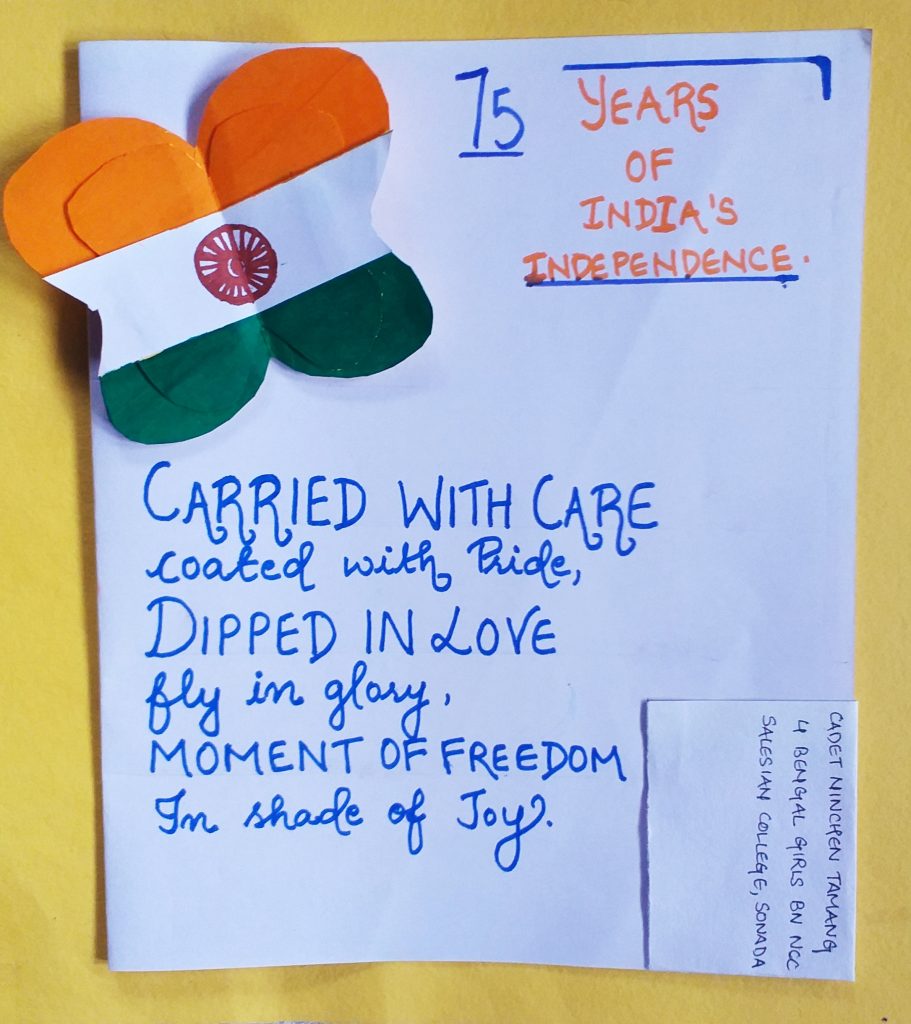 75 YEARS
OF
INDIA'S
INDEPENDENCE.
CARRIED WITH CARE
coated with Pride,
DIPPED IN LOVE
fly in glory,
MOMENT OF FREEDOM
In shade of Joy.
CADET NINCHEN TAMANG
4 BENGAL GIRLS BN NCC
SALESIAN COLLEGE, SONADA